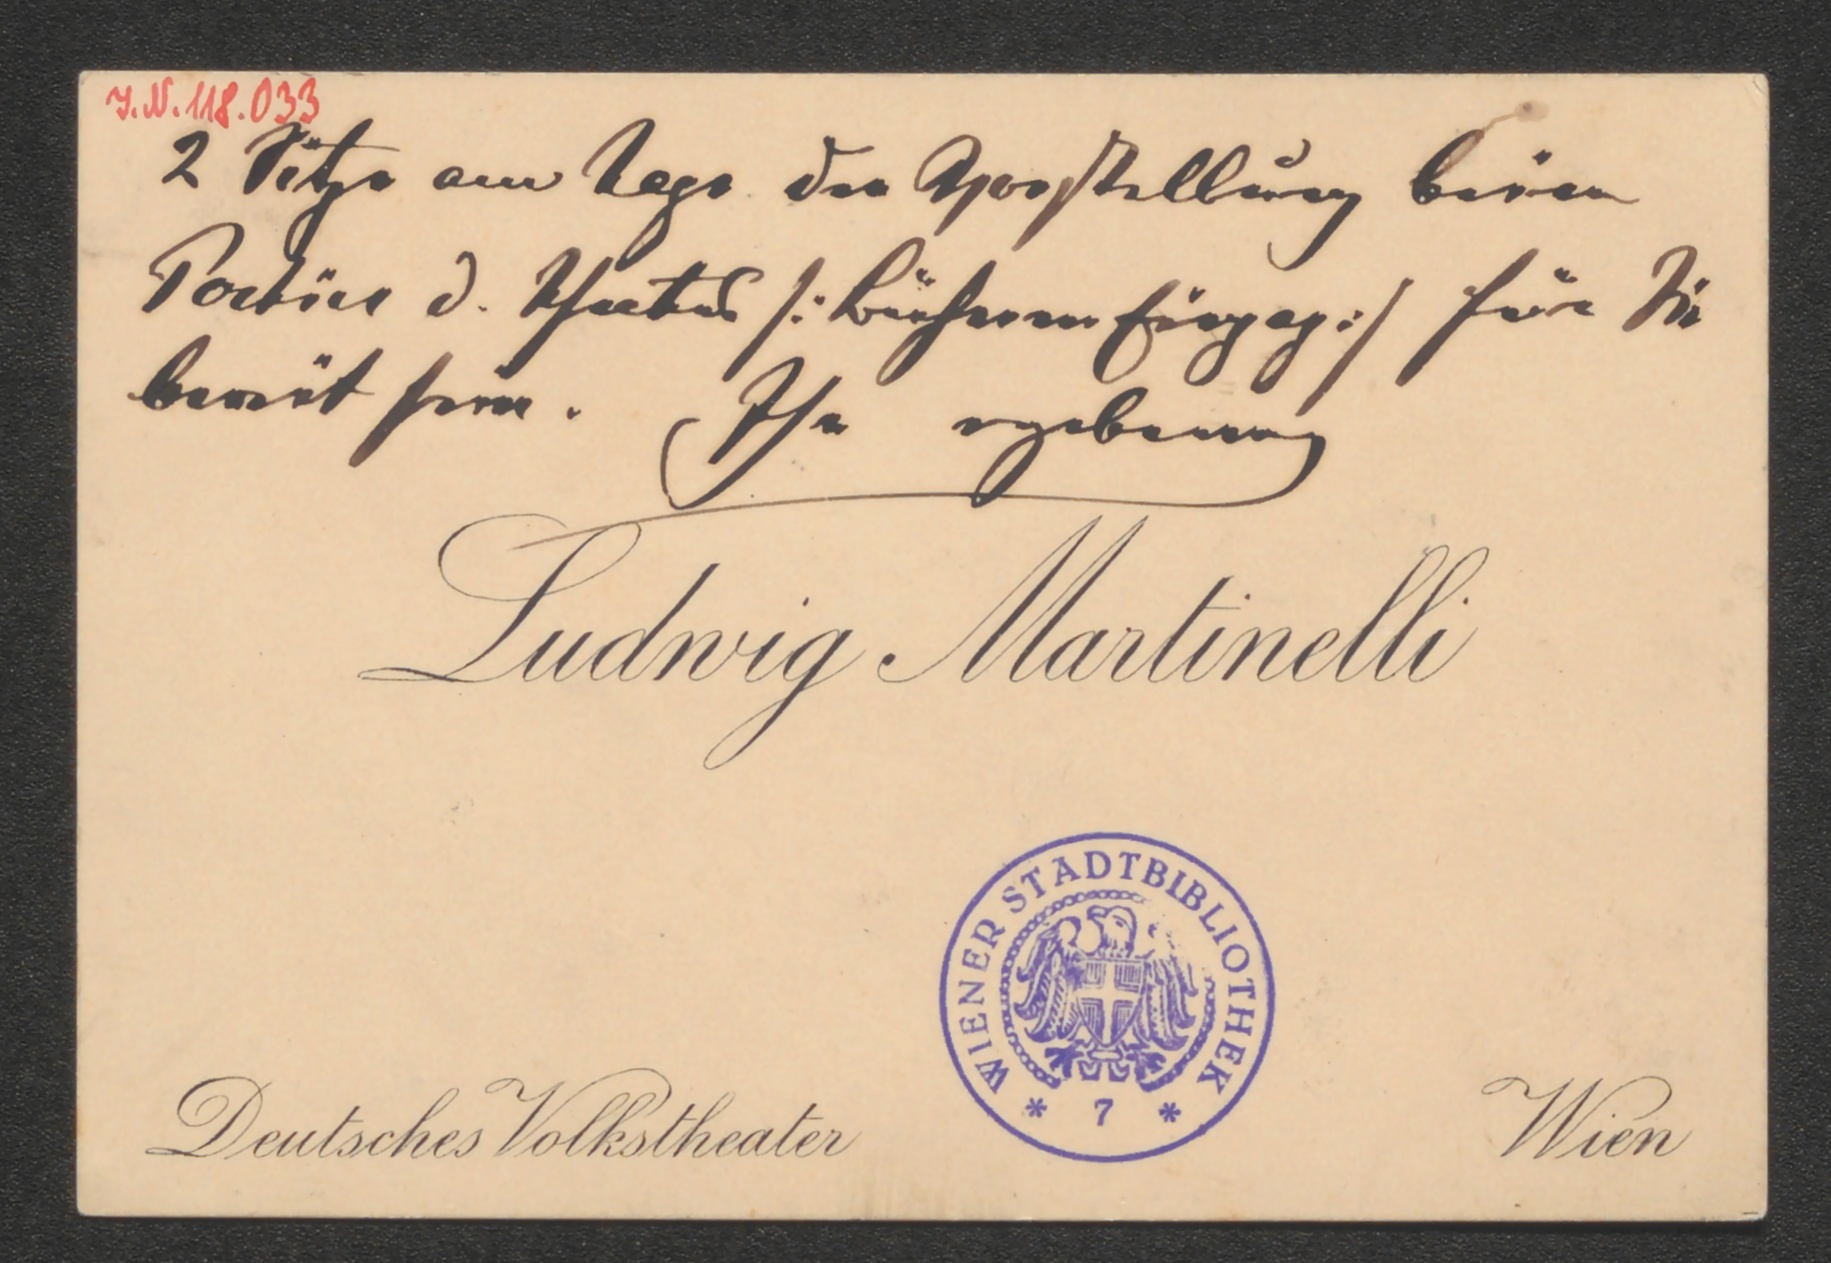 I.N. 118.033
2 Sitze am Tage der Vorstellung beim
Portier d. Theaters /: Bühnen Eingag :/ für Sie
bereit sein. Ihr ergebener
Ludwig Martinelli
WIENER STADTBIBLIOTHEK
* 7 *
Deutsches Volkstheater
Wien